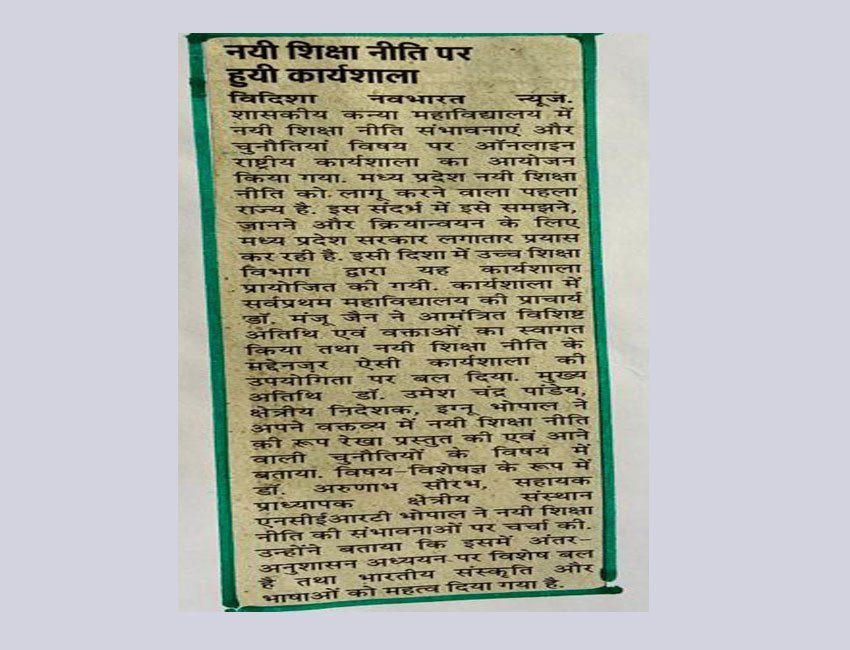 नयी शिक्षा नीति पर
हुयी कार्यशाला
विदिशा नवभारत न्यूज.
शासकीय कन्या महाविद्यालय में
नयी शिक्षा नीति संभावनाएं और
चुनौतियां विषय पर ऑनलाइन
राष्ट्रीय कार्यशाला का आयोजन
किया गया. मध्य प्रदेश नयी शिक्षा
नीति को लागू करने वाला पहला
राज्य है. इस संदर्भ में इसे समझने,
ज़ानने और क्रियान्वयन के लिए
मध्य प्रदेश सरकार लगातार प्रयास
कर रही है. इसी दिशा में उच्च शिक्षा
विभाग द्वारा यह कार्यशाला
प्रायोजित की गयी. कार्यशाला में
सर्वप्रथम महाविद्यालय की प्राचार्य
डॉ. मंजू जैन ने आमंत्रित विशिष्ट
अतिथि एवं वक्ताओं का स्वागत
किया तथा नयी शिक्षा नीति के
मद्देनज़र ऐसी कार्यशाला की
उपयोगिता पर बल दिया. मुख्य
अतिथि डॉ. उमेश चंद्र पांडेय,
क्षेत्रीय निदेशक, इग्नू भोपाल ने
अपने वक्तव्य में नयी शिक्षा नीति
की रूप रेखा प्रस्तुत की एवं आने
वाली चुनौतियों के विषय में
बताया. विषय–विशेषज्ञ के रूप में
डॉ. अरुणाभ सौरभ, सहायक
प्राध्यापक क्षेत्रीय संस्थान
एनसीईआरटी भोपाल ने नयी शिक्षा
नीति की संभावनाओं पर चर्चा की.
उन्होंने बताया कि इसमें अंतर–
अनुशासन अध्ययन पर विशेष बल
है तथा भारतीय संस्कृति और
भाषाओं को महत्व दिया गया है.